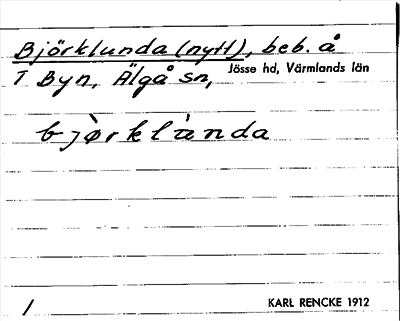 Björklunda (nytt), beb. å
T Byn, Älgå sn, Jösse hd, Värmlands län
bjø̀rklànda
/ KARL RENCKE 1912